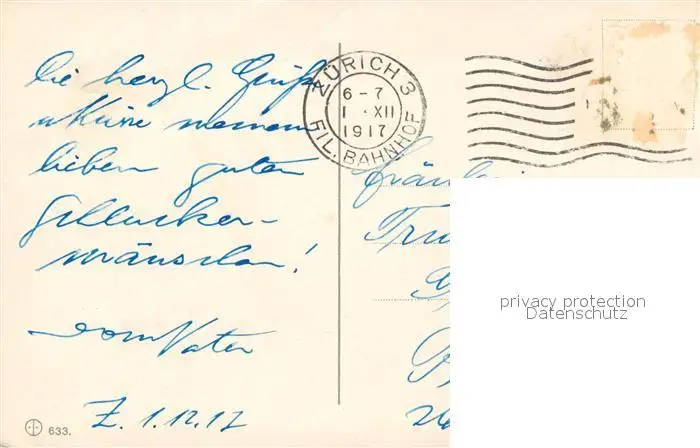 Die herzl. Grüße
u Küsse meinem
lieben guten
mäuschen!
vom Vater
Z. 1.12.17
633.
ZÜRICH 3
6-7
1 · XII
1917
FIL. BAHNHOF
Fräulein
Tru
privacy protection
Datenschutz